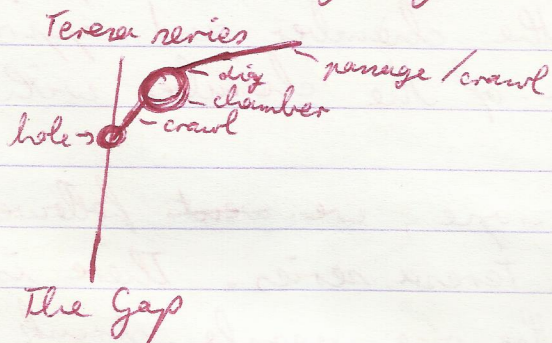 Teresa series
dig
passage/crawl
chamber
crawl
hole
The Gap